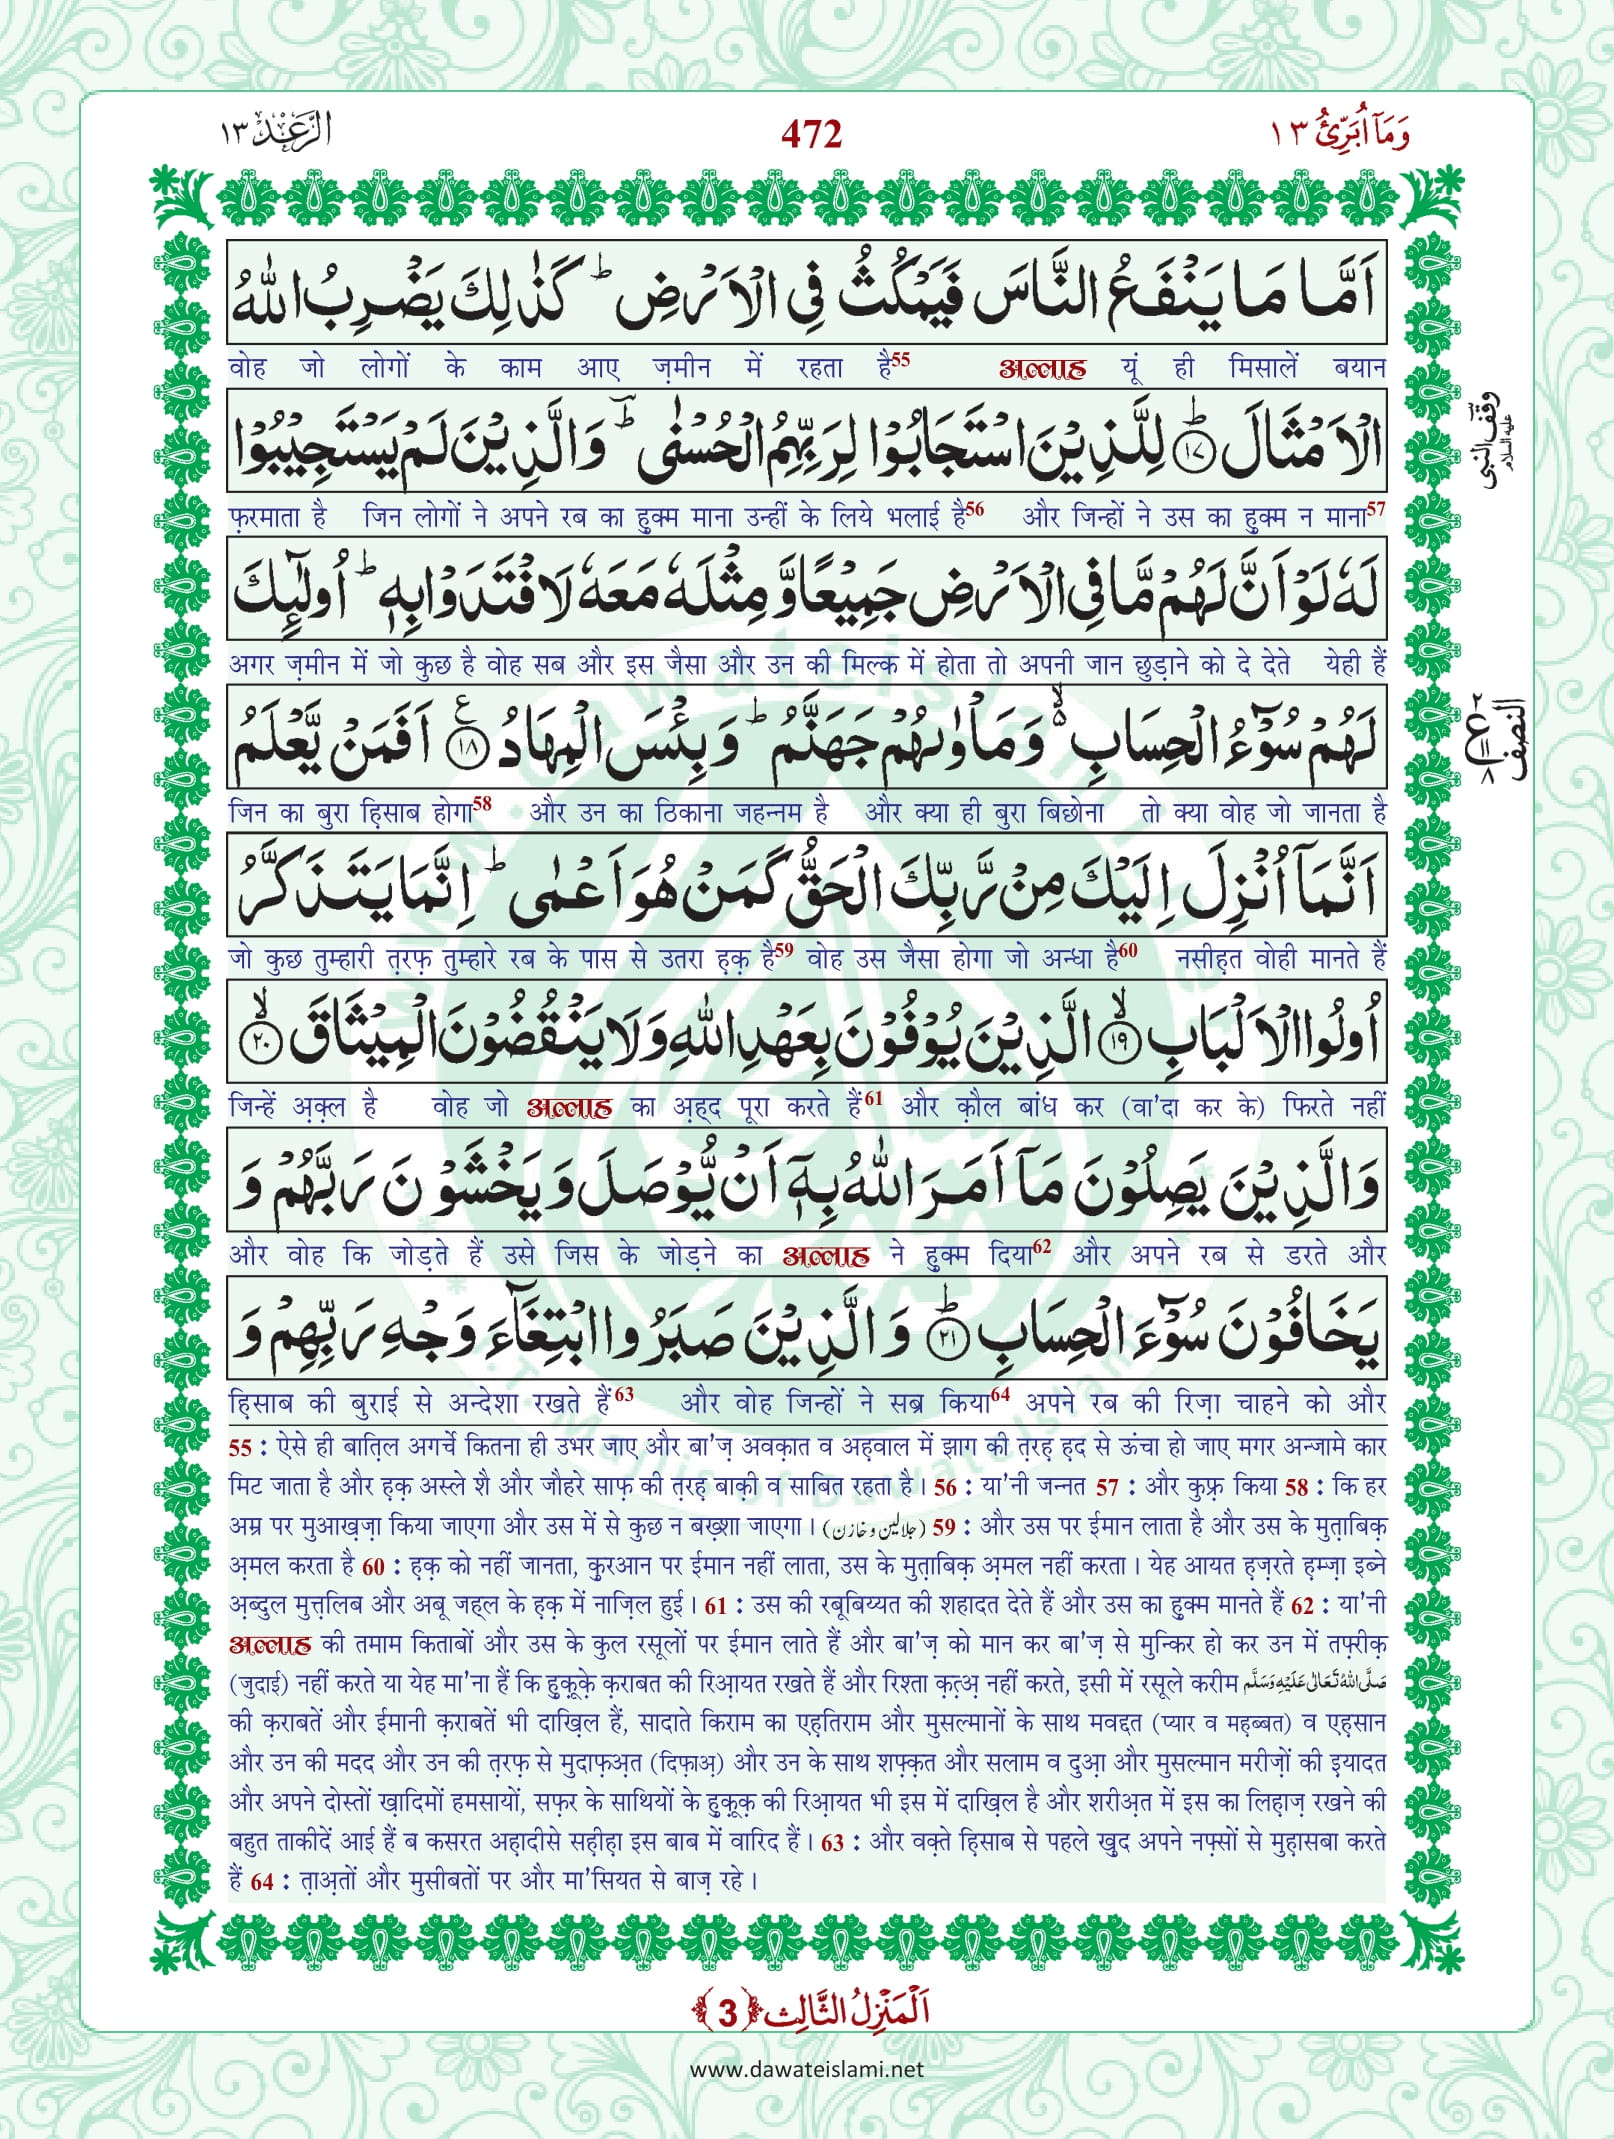 وَمَاۤ اُبَرِّئُ ١٣
472
الرَّعْد ١٣
اَمَّا مَا يَنْفَعُ النَّاسَ فَيَمْكُثُ فِى الْاَرْضِ ؕ كَذٰلِكَ يَضْرِبُ اللّٰهُ
वोह जो लोगों के काम आए ज़मीन में रहता है55 अल्लाह यूं ही मिसालें बयान
الْاَمْثَالَ ؕ﴿١٧﴾ لِلَّذِيْنَ اسْتَجَابُوْا لِرَبِّهِمُ الْحُسْنٰى ؕ وَالَّذِيْنَ لَمْ يَسْتَجِيْبُوْا
وقف النبى عليه السلام
फ़रमाता है जिन लोगों ने अपने रब का हुक्म माना उन्हीं के लिये भलाई है56 और जिन्हों ने उस का हुक्म न माना57
لَهٗ لَوْ اَنَّ لَهُمْ مَّا فِى الْاَرْضِ جَمِيْعًا وَّ مِثْلَهٗ مَعَهٗ لَافْتَدَوْا بِهٖ ؕ اُولٰٓئِكَ
अगर ज़मीन में जो कुछ है वोह सब और इस जैसा और उन की मिल्क में होता तो अपनी जान छुड़ाने को दे देते येही हैं
لَهُمْ سُوْٓءُ الْحِسَابِ ۙ۬ وَمَاْوٰىهُمْ جَهَنَّمُ ؕ وَبِئْسَ الْمِهَادُ ﴿١٨﴾ ع اَفَمَنْ يَّعْلَمُ
النصف
जिन का बुरा हिसाब होगा58 और उन का ठिकाना जहन्नम है और क्या ही बुरा बिछोना तो क्या वोह जो जानता है
اَنَّمَاۤ اُنْزِلَ اِلَيْكَ مِنْ رَّبِّكَ الْحَقُّ كَمَنْ هُوَ اَعْمٰى ؕ اِنَّمَا يَتَذَكَّرُ
जो कुछ तुम्हारी त़रफ़ तुम्हारे रब के पास से उतरा ह़क़ है59 वोह उस जैसा होगा जो अन्धा है60 नसीह़त वोही मानते हैं
اُولُوا الْاَلْبَابِ ۙ﴿١٩﴾ الَّذِيْنَ يُوْفُوْنَ بِعَهْدِ اللّٰهِ وَلَا يَنْقُضُوْنَ الْمِيْثَاقَ ۙ﴿٢٠﴾
जिन्हें अ़क़्ल है वोह जो अल्लाह का अ़ह्द पूरा करते हैं61 और क़ौल बांध कर (वा'दा कर के) फिरते नहीं
وَالَّذِيْنَ يَصِلُوْنَ مَاۤ اَمَرَ اللّٰهُ بِهٖۤ اَنْ يُّوْصَلَ وَيَخْشَوْنَ رَبَّهُمْ وَ
और वोह कि जोड़ते हैं उसे जिस के जोड़ने का अल्लाह ने हुक्म दिया62 और अपने रब से डरते और
يَخَافُوْنَ سُوْٓءَ الْحِسَابِ ؕ﴿٢١﴾ وَالَّذِيْنَ صَبَرُوا ابْتِغَآءَ وَجْهِ رَبِّهِمْ وَ
हि़साब की बुराई से अन्देशा रखते हैं63 और वोह जिन्हों ने सब्र किया64 अपने रब की रिज़ा चाहने को और
55 : ऐसे ही बात़िल अगर्चे कितना ही उभर जाए और बा'ज़ अवक़ात व अह़वाल में झाग की त़रह़ ह़द से ऊंचा हो जाए मगर अन्जामे कार
मिट जाता है और ह़क़ अस्ले शै और जौहरे साफ़ की त़रह़ बाक़ी व साबित रहता है। 56 : या'नी जन्नत 57 : और कुफ़्र किया 58 : कि हर
अम्र पर मुआख़ज़ा किया जाएगा और उस में से कुछ न बख़्शा जाएगा। (جلالين و خازن) 59 : और उस पर ईमान लाता है और उस के मुत़ाबिक़
अ़मल करता है 60 : ह़क़ को नहीं जानता, कुरआन पर ईमान नहीं लाता, उस के मुत़ाबिक़ अ़मल नहीं करता। येह आयत ह़ज़रते ह़म्ज़ा इब्ने
अ़ब्दुल मुत्त़लिब और अबू जह्ल के ह़क़ में नाज़िल हुई। 61 : उस की रबूबिय्यत की शहादत देते हैं और उस का हुक्म मानते हैं 62 : या'नी
अल्लाह की तमाम किताबों और उस के कुल रसूलों पर ईमान लाते हैं और बा'ज़ को मान कर बा'ज़ से मुन्किर हो कर उन में तफ़्रीक़
(जुदाई) नहीं करते या येह मा'ना हैं कि हुक़ूक़े क़राबत की रिआ़यत रखते हैं और रिश्ता क़त़्अ़ नहीं करते, इसी में रसूले करीम صَلَّى اللّٰهُ تَعَالٰى عَلَيْهِ وَسَلَّم
की क़राबतें और ईमानी क़राबतें भी दाख़िल हैं, सादाते किराम का एह़तिराम और मुसल्मानों के साथ मवद्दत (प्यार व मह़ब्बत) व एह़सान
और उन की मदद और उन की त़रफ़ से मुदाफ़अ़त (दिफ़ाअ़) और उन के साथ शफ़्क़त और सलाम व दुआ़ और मुसल्मान मरीज़ों की इ़यादत
और अपने दोस्तों ख़ादिमों हमसायों, सफ़र के साथियों के हुक़ूक़ की रिआ़यत भी इस में दाख़िल है और शरीअ़त में इस का लिह़ाज़ रखने की
बहुत ताकीदें आई हैं ब कसरत अह़ादीसे सह़ीह़ा इस बाब में वारिद हैं। 63 : और वक़्ते हि़साब से पहले ख़ुद अपने नफ़्सों से मुह़ासबा करते
हैं 64 : त़ाअ़तों और मुसीबतों पर और मा'सियत से बाज़ रहे।
اَلْمَنْزِلُ الثَّالِث ﴿3﴾
www.dawateislami.net